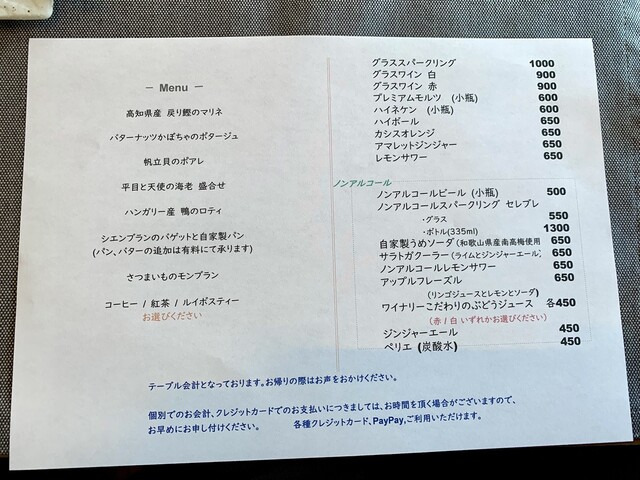 ― Menu ―
高知県産 戻り鰹のマリネ
バターナッツかぼちゃのポタージュ
帆立貝のポアレ
平目と天使の海老 盛合せ
ハンガリー産 鴨のロティ
シエンブランのバゲットと自家製パン
(パン、バターの追加は有料にて承ります)
さつまいものモンブラン
コーヒー / 紅茶 / ルイボスティー
お選びください
グラススパークリング 1000
グラスワイン 白 900
グラスワイン 赤 900
プレミアムモルツ (小瓶) 600
ハイネケン (小瓶) 600
ハイボール 650
カシスオレンジ 650
アマレットジンジャー 650
レモンサワー 650
ノンアルコール
ノンアルコールビール (小瓶) 500
ノンアルコールスパークリング セレブレ
・グラス 550
・ボトル(335ml) 1300
自家製うめソーダ(和歌山県産南高梅使用 650
サラトガクーラー(ライムとジンジャーエール) 650
ノンアルコールレモンサワー 650
アップルフレーズル 650
(リンゴジュースとレモンとソーダ)
ワイナリーこだわりのぶどうジュース 各450
(赤/白 いずれかお選びください)
ジンジャーエール 450
ペリエ (炭酸水) 450
テーブル会計となっております。お帰りの際はお声をおかけください。
個別でのお会計、クレジットカードでのお支払いにつきましては、お時間を頂く場合がございますので、
お早めにお申し付けください。 各種クレジットカード、PayPay,ご利用いただけます。